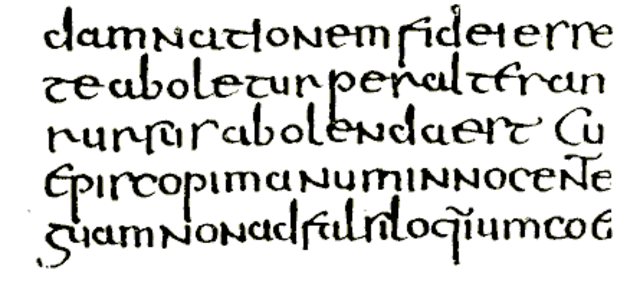 damnationem fidei esse
te aboletur per alteran
rursus abolenda est Cu
episcopi manum innocente
guam non ad falsiloq̃ium coe